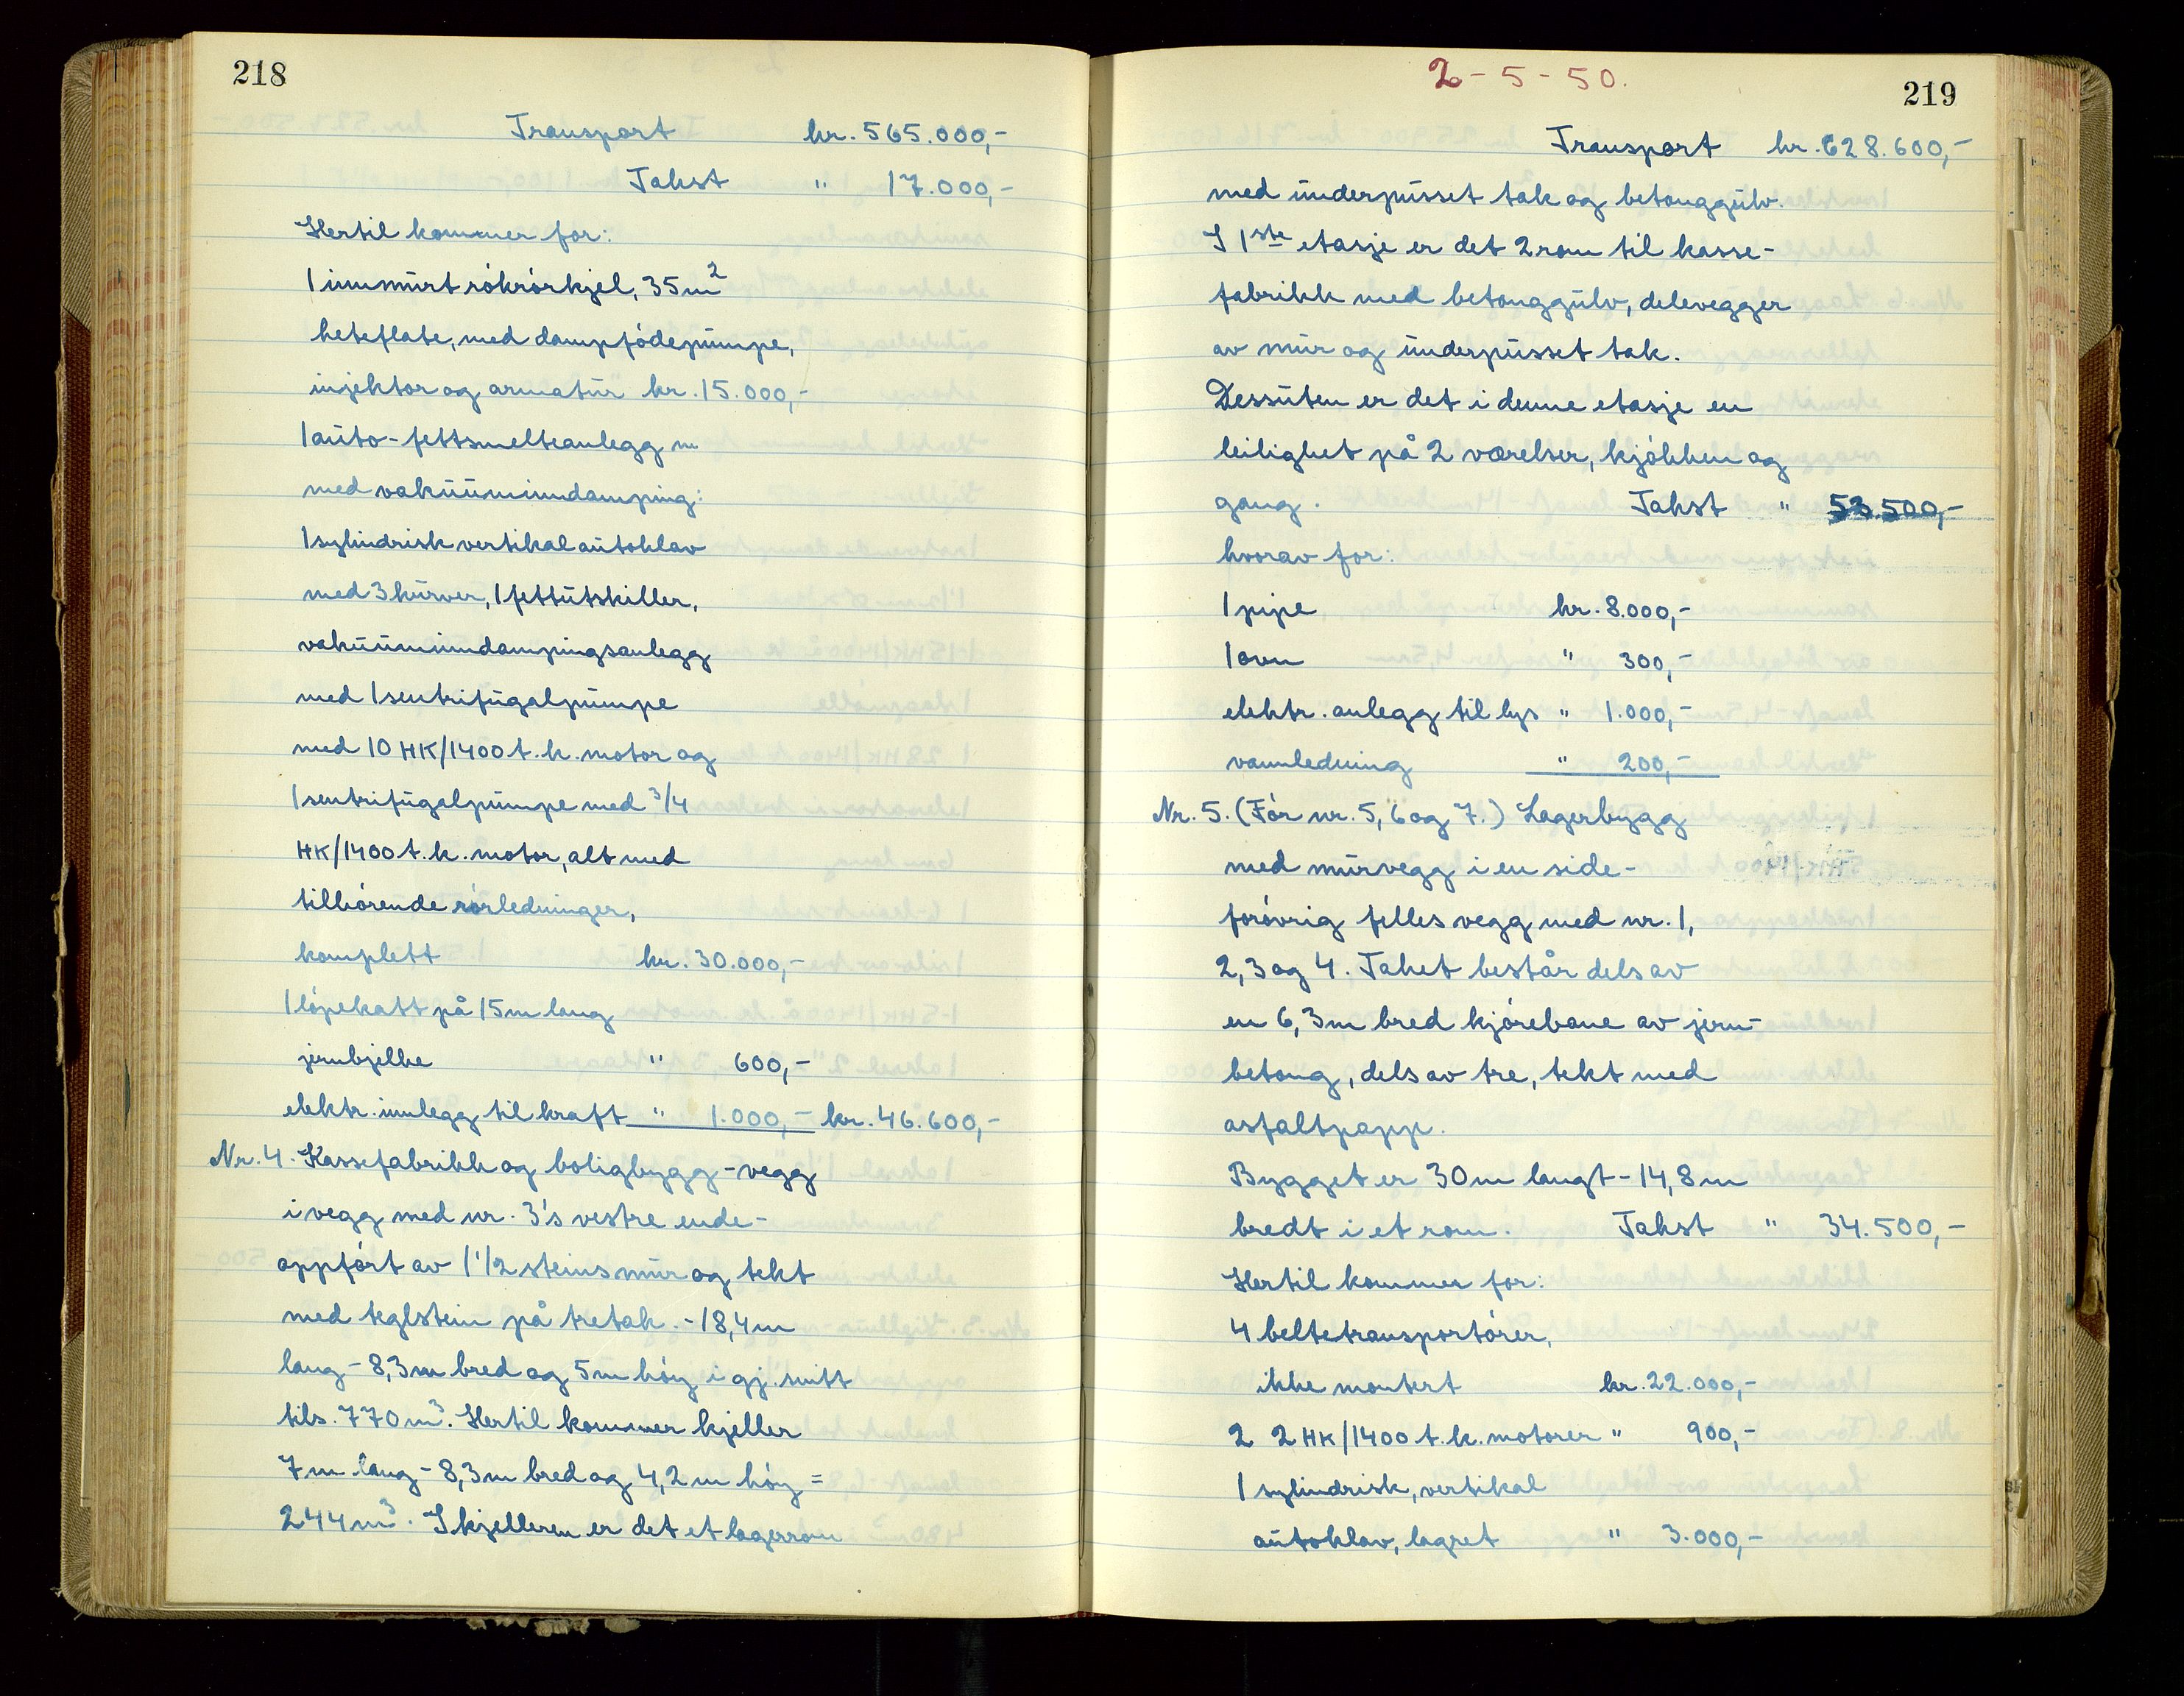 218
Transport kr. 565.000,-
Takst " 17.000,-
Hertil kommer for:
1 innmurt rökrörkjel, 35 m²
heteflate, med dampfödepumpe,
injektor og armatur kr. 15.000,-
1 auto-fettsmelteanlegg m
med vakuuminndamping:
1 sylindrisk vertikal autoklav
med 3 kurver, 1 fettutskiller,
vakuuminndampingsanlegg
med 1 sentrifugalpumpe
med 10 HK/1400 t.k. motor og
1 sentrifugalpumpe med 3/4
HK/1400 t.k. motor, alt med
tilhörende rörledninger,
komplett kr. 30.000,-
1 löpekatt på 15m lang
jernbjelke " 600,-
elektr. innlegg til kraft " 1.000,- kr. 46.600,-
Nr. 4. Kassefabrikk og boligbygg - vegg
i vegg med nr. 3's vestre ende-
oppfört av 1 1/2 steins mur og tekt
med teglstein på tretak. - 18,4m
lang - 8,3m bred og 5m höy i gj. snitt
tils. 770 m³. Hertil kommer kjeller
7m lang - 8,3m bred og 4,2m höy =
244 m³. I kjelleren er det et lagerrom
2-5-50.
219
Transport kr. 628.600,-
med underpusset tak og betonggulv.
I 1ste etasje er det 2 rom til kasse-
fabrikk med betonggulv, delevegger
av mur og underpusset tak.
Dessuten er det i denne etasje en
leilighet på 2 værelser, kjökken og
gang. Takst " 53.500,-
hvorav for:
1 pipe kr. 8.000,-
1 ovn " 300,-
elektr. anlegg til lys " 1.000,-
vannledning " 200,-
Nr. 5. (För nr. 5, 6 og 7.) Lagerbygg
med murvegg i en side-
forövrig felles vegg med nr. 1,
2, 3 og 4. Taket består dels av
en 6,3m bred kjörebane av jern-
betong, dels av tre, tekt med
asfaltpapp.
Bygget er 30m langt - 14,8m
bredt i et rom. Takst " 34.500,-
Hertil kommer for:
4 beltetransportörer,
ikke montert kr. 22.000,-
2 2 HK/1400 t.k. motorer " 900,-
1 sylindrisk, vertikal
autoklav, lagret " 3.000,-